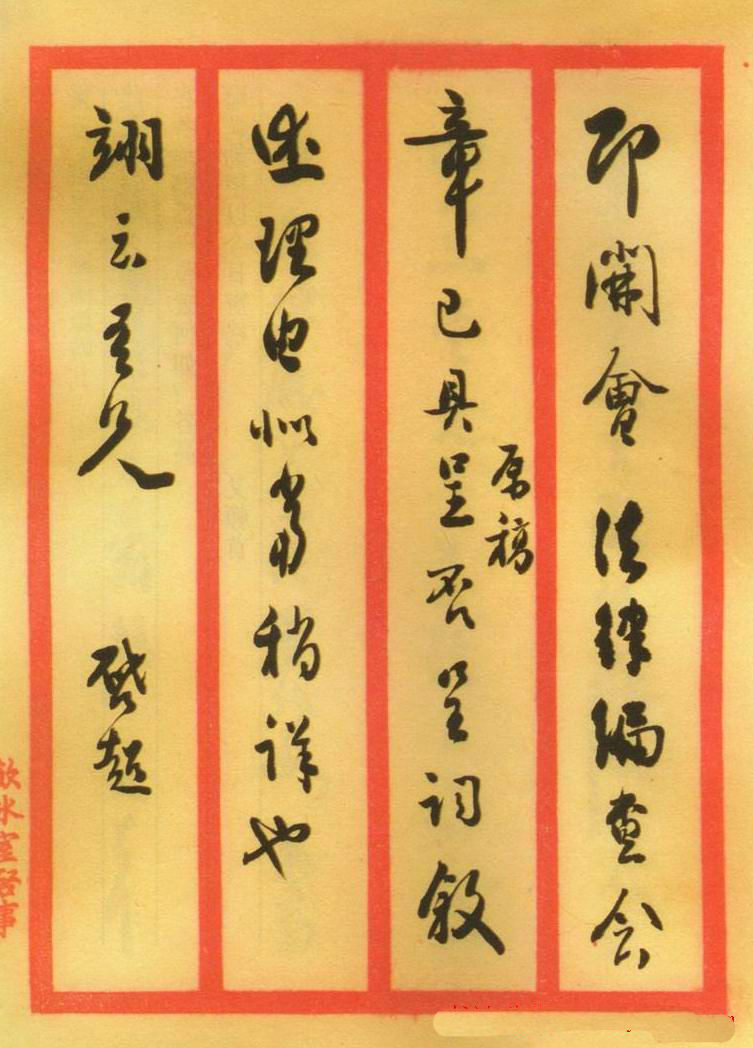 即開會 法律編查会
章已具呈否原稿呈詞敘
述理由似當稍詳也
翊云吾兄 啟超
飲冰室啓事